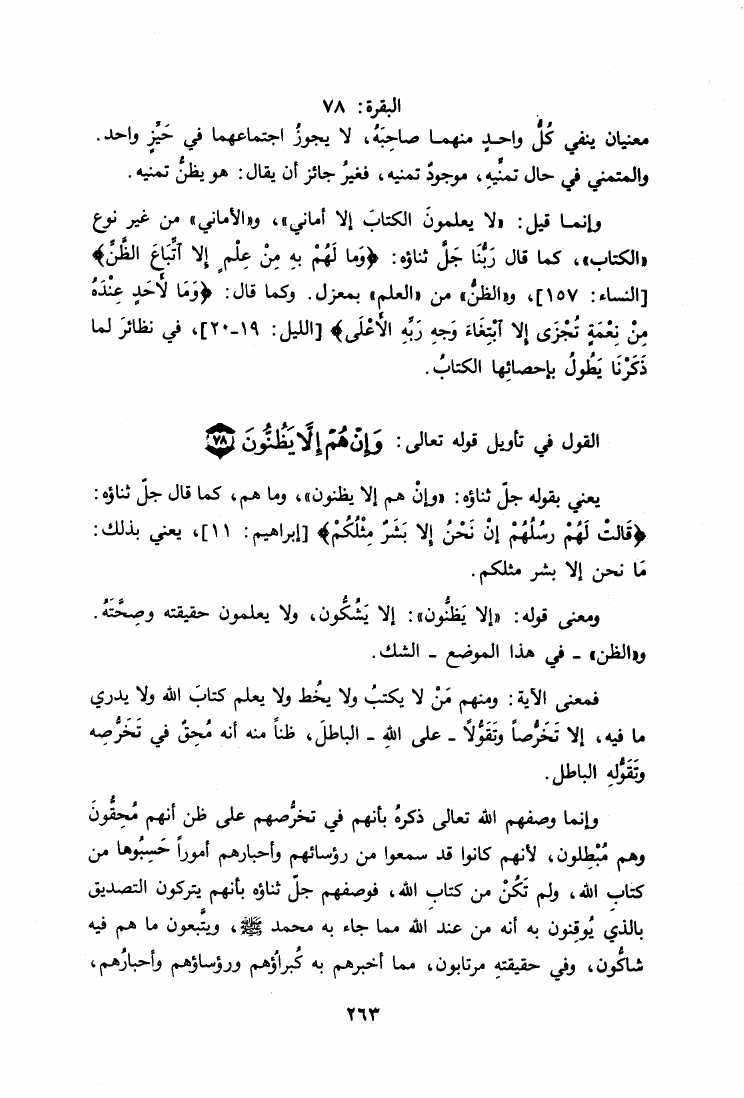 البقرة: ٧٨
معنيان ينفي كُلُّ واحـدٍ منهمـا صاحِبَهُ، لا يجوزُ اجتماعهما في حَيِّزٍ واحد.
والمتمني في حال تمنِّيهِ، موجودٌ تمنيه، فغيرُ جائز أن يقال: هو يظنُّ تمنيه.
وإنمـا قيل: «لا يعلمونَ الكتابَ إلا أماني»، و«الأماني» من غير نوع
«الكتاب»، كما قال رَبُّنَا جَلَّ ثناؤه: ﴿وَما لَهُمْ بِهِ مِنْ عِلْمٍ إِلا آتِّبَاعَ الظَّنِّ﴾
[النساء: ١٥٧]، و«الظنُّ» من «العلم» بمعزل. وكما قال: ﴿وَمَا لأَحَدٍ عِنْدَهُ
مِنْ نِعْمَةٍ تُجْزَى إلا آبْتِغَاءَ وَجهِ رَبِّهِ الأَعْلَى﴾ [الليل: ١٩-٢٠]، في نظائرَ لما
ذَكَرْنَا يَطُولُ بإحصائِها الكتابُ.
القول في تأويل قوله تعالى: وَإِنْ هُمْ إِلَّا يَظُنُّونَ ٧٨
يعني بقوله جلّ ثناؤه: «وإنْ هم إلا يظنون»، وما هم، كما قال جلّ ثناؤه:
﴿قَالتْ لَهُمْ رسُلُهُمْ إنْ نَحْنُ إلا بَشَرٌ مِثْلُكُمْ﴾ [إبراهيم: ١١]، يعني بذلك:
مَا نحن إلا بشر مثلكم.
ومعنى قوله: «إلا يَظنُّون»: إلا يَشُكُّون، ولا يعلمون حقيقته وصِحَّتَهُ.
و«الظن» ـ في هذا الموضع ـ الشك.
فمعنى الآية: ومنهم مَنْ لا يكتبُ ولا يخُط ولا يعلم كتابَ الله ولا يدري
ما فيه، إلا تَخَرُّصاً وتَقَوُّلاً ـ على اللهِ ـ الباطلَ، ظناً منه أنه مُحِقٌ في تَخَرُّصِه
وتَقَوُّلهِ الباطل.
وإنما وصفهم الله تعالى ذكرهُ بأنهم في تخرُّصهم على ظن أنهم مُحِقُّونَ
وهم مُبْطِلون، لأنهم كانوا قد سمعوا من رؤسائهم وأحبارهم أموراً حَسِبُوها من
كتابِ الله، ولم تَكُنْ من كتابِ الله، فوصفهم جلّ ثناؤه بأنهم يتركون التصديق
بالذي يُوقِنون به أنه من عند الله مما جاء به محمد ﷺ، ويتَّبعون ما هم فيه
شاكُّون، وفي حقيقتهِ مرتابون، مما أخبرهم به كُبراؤهم ورؤساؤهم وأحبارُهم،
٢٦٣